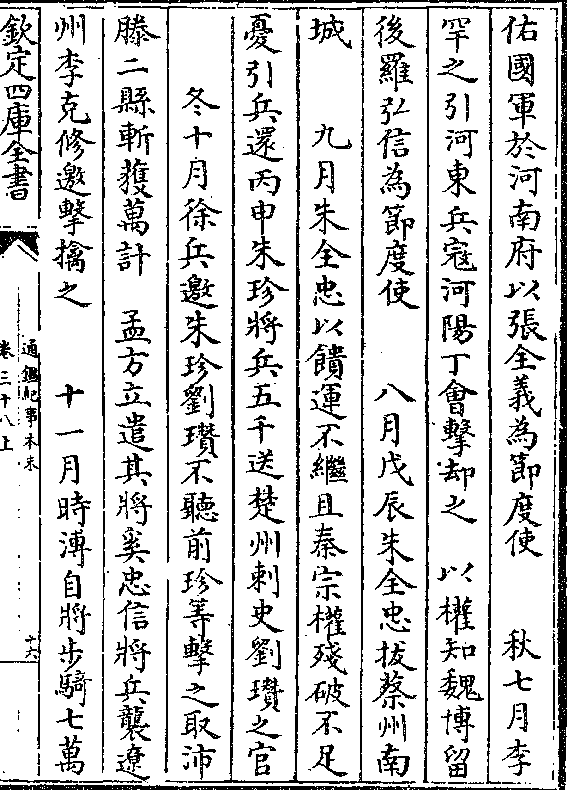 佑國軍於河南府以張全義為節度使　秋七月李
罕之引河東兵寇河陽丁會擊却之　以權知魏博留
後羅弘信為節度使　八月戊辰朱全忠拔蔡州南
城　九月朱全忠以饋運不繼且秦宗權殘破不足
憂引兵還丙申朱珍將兵五千送楚州刺史劉瓚之官
冬十月徐兵邀朱珍劉瓚不聽前珍等擊之取沛
滕二縣斬獲萬計　孟方立遣其將奚忠信將兵襲遼
州李克修邀擊擒之　十一月時溥自將步騎七萬
欽定四庫全書
通鑑紀事本末
卷三十八上
十六